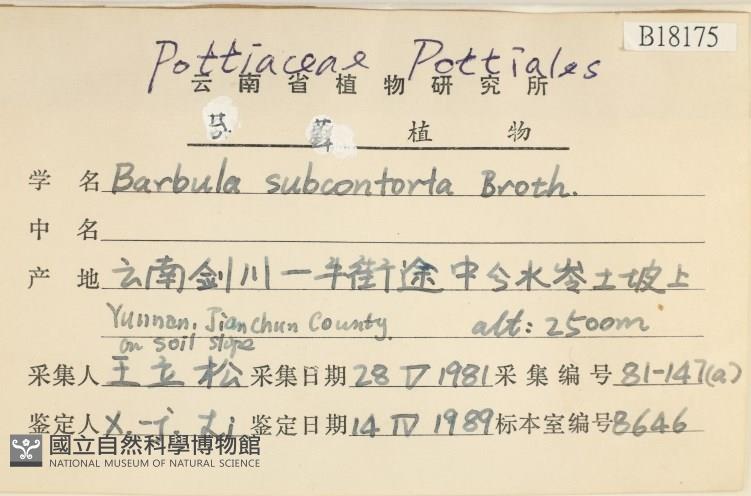 B18175
Pottiaceae Pottiales
云南省植物研究所
苔 藓 植 物
学 名 Barbula subcontorta Broth.
中 名
产 地 云南剑川一牛街途中分水岺土坡上
Yunnan, Jianchun County alt: 2500m
on soil slope
采集人 王立松 采集日期 28 IV 1981 采集编号 81-147(a)
鉴定人 X.-j. Li 鉴定日期 14 IV 1989 标本室编号 8646
國立自然科學博物館
NATIONAL MUSEUM OF NATURAL SCIENCE